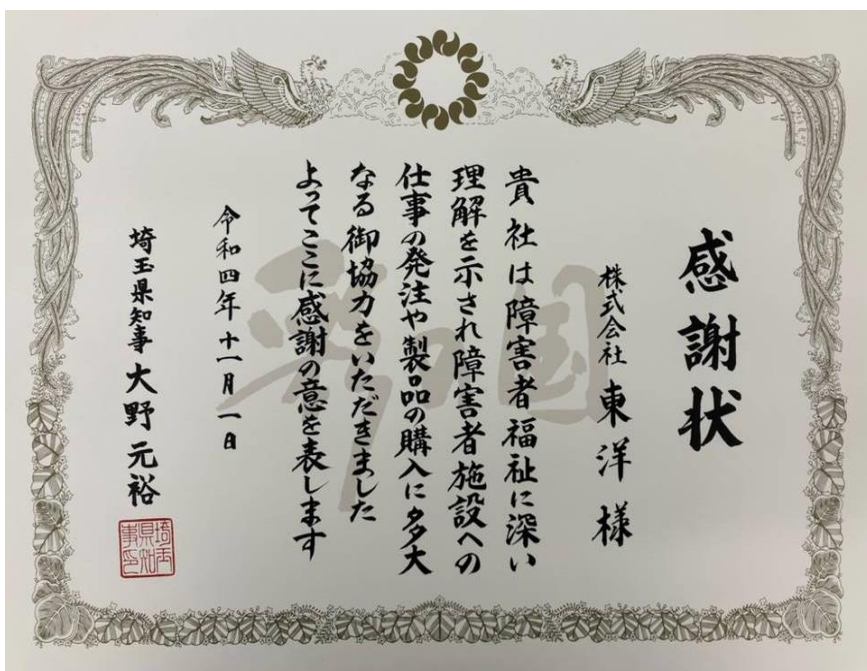 感謝状
株式会社 東洋 様
貴社は障害者福祉に深い
理解を示され障害者施設への
仕事の発注や製品の購入に多大
なる御協力をいただきました
よってここに感謝の意を表します
令和四年十一月一日
埼玉県知事 大野元裕
埼玉
県知
事印
彩の国